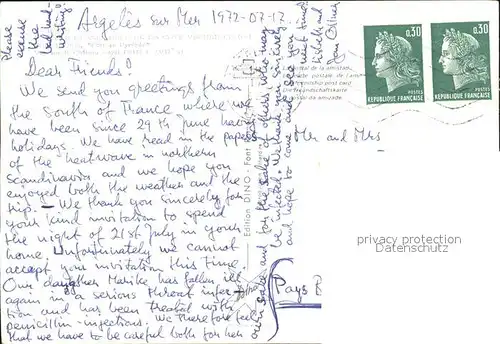 Argelès sur Mer 1972-07-17.
Please
excuse
the
bad hand-
writing!
Dear Friends!
We send you greetings from
the South of France where we
have been since 29th June having
holidays. We have read in the papers
of the heatwave in northern
Scandinavia and we hope you
enjoyed both the weather and the
trip. - We thank you sincerely for
your kind invitation to spend
the night of 21st July in your
home. Unfortunately we cannot
accept your invitation this time.
Our daughter Marike has fallen ill
again in a serious throat infec-
tion and has been treated with
penicillin-injections. We therefore feel
that we have to be careful both for her
and for the sake of others who may
be infected. We thank you sincerely
and hope to come and see you
next time!
Edition DINO - Font
Mr and Mrs
Pays
0,30
POSTES
REPUBLIQUE FRANÇAISE
0,30
POSTES
REPUBLIQUE FRANÇAISE
privacy protection
Datenschutz